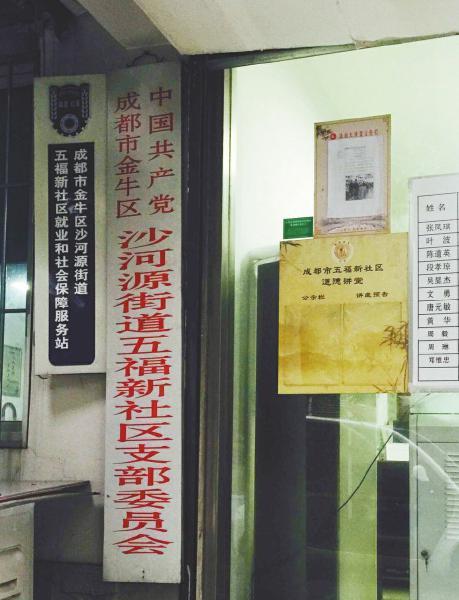 成都市金牛区沙河源街道
五福新社区就业和社会保障服务站
中国共产党
成都市金牛区
沙河源街道五福新社区支部委员会
成都市五福新社区
道德讲堂
公示栏 讲座预告
姓名
张凤琪
叶波
陈道英
段孝琼
吴显杰
文勇
唐元敏
黄华
周毅
周琳
邓维忠